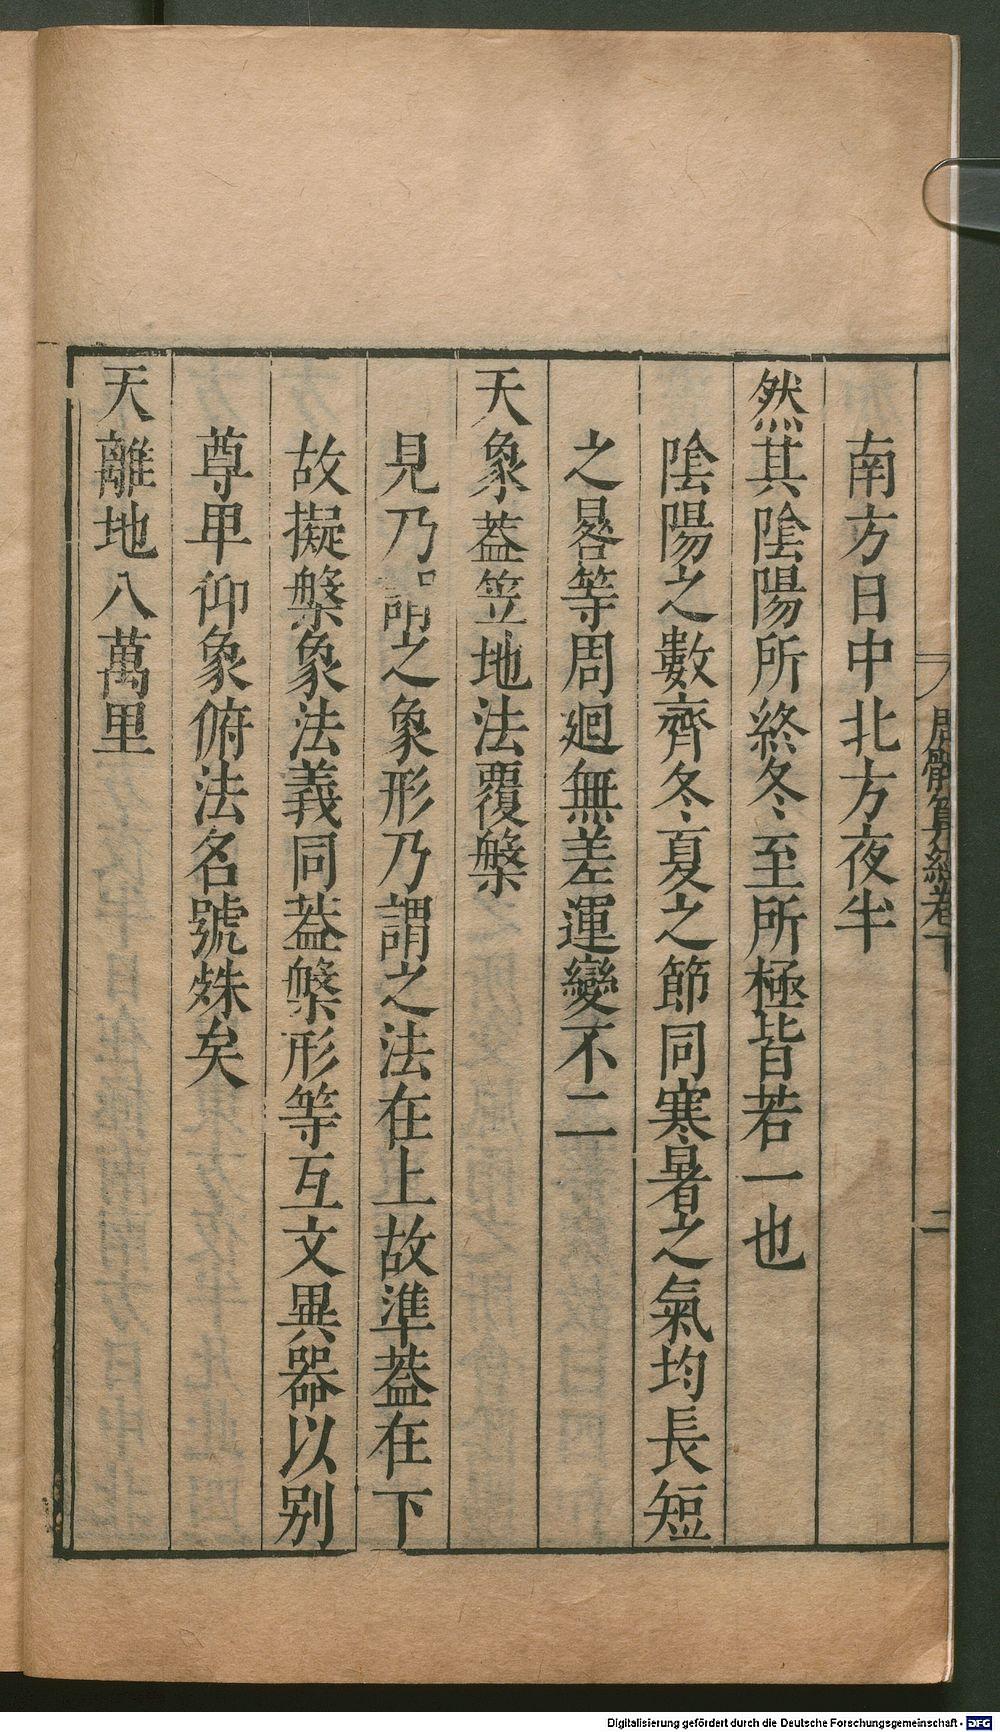 周髀算經卷下
二
南方日中北方夜半
然其陰陽所終冬至所極皆若一也
陰陽之數齊冬夏之節同寒暑之氣均長短
之晷等周𢌞無差運變不二
天象蓋笠地法覆槃
見乃謂之象形乃謂之法在上故準蓋在下
故擬槃象法義同蓋槃形等互文異器以别
尊卑仰象俯法名號殊矣
天離地八萬里
Digitalisierung gefördert durch die Deutsche Forschungsgemeinschaft - DFG